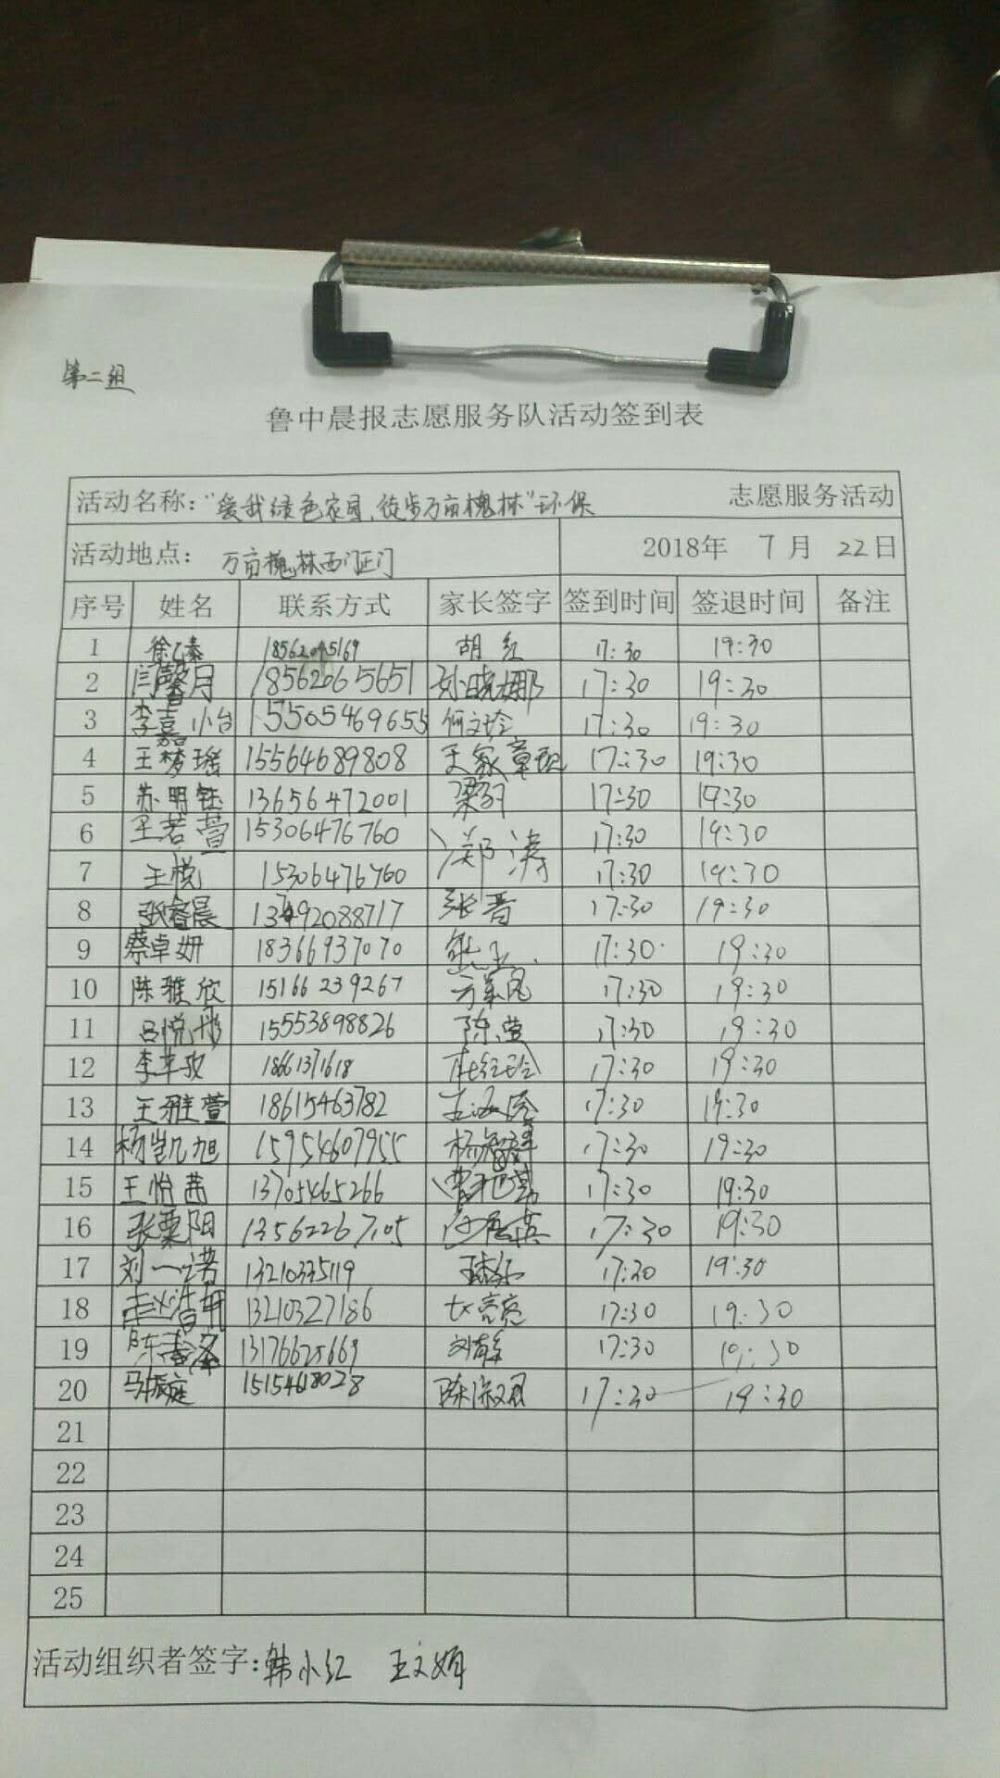 第二组
鲁中晨报志愿服务队活动签到表
活动名称："爱我绿色家园,徒步万亩槐林"环保 志愿服务活动
活动地点：万亩槐林西门正门 2018年 7月 22日
序号 姓名 联系方式 家长签字 签到时间 签退时间 备注
1 胡红 17:30 19:30
2 闫馨月 18562065651 孙晓娜 17:30 19:30
3 李嘉 15505469655 何文玲 17:30 19:30
4 王梦瑶 15564689808 17:30 19:30
5 苏明钰 13656472001 17:30 19:30
6 王若萱 15306476760 郑涛 17:30 19:30
7 王悦 15306476760 17:30 19:30
8 张睿晨 张晋 17:30 19:30
9 蔡卓妍 18366937070 17:30 19:30
10 陈雅欣 15166239267 17:30 19:30
11 吕悦彤 15553898826 陈莹 17:30 19:30
12 18661371618 杜红玲 17:30 19:30
13 王雅萱 18615463782 17:30 19:30
14 杨凯旭 15954607955 17:30 19:30
15 王怡茜 13705465266 17:30 19:30
16 张粟阳 13562267105 17:30 19:30
17 刘一诺 13210335119 17:30 19:30
18 13210327186 17:30 19:30
19 13176625669 17:30 19:30
20 马振庭 15154618028 陈淑君 17:30 19:30
21
22
23
24
25
活动组织者签字:韩小红 王文娟